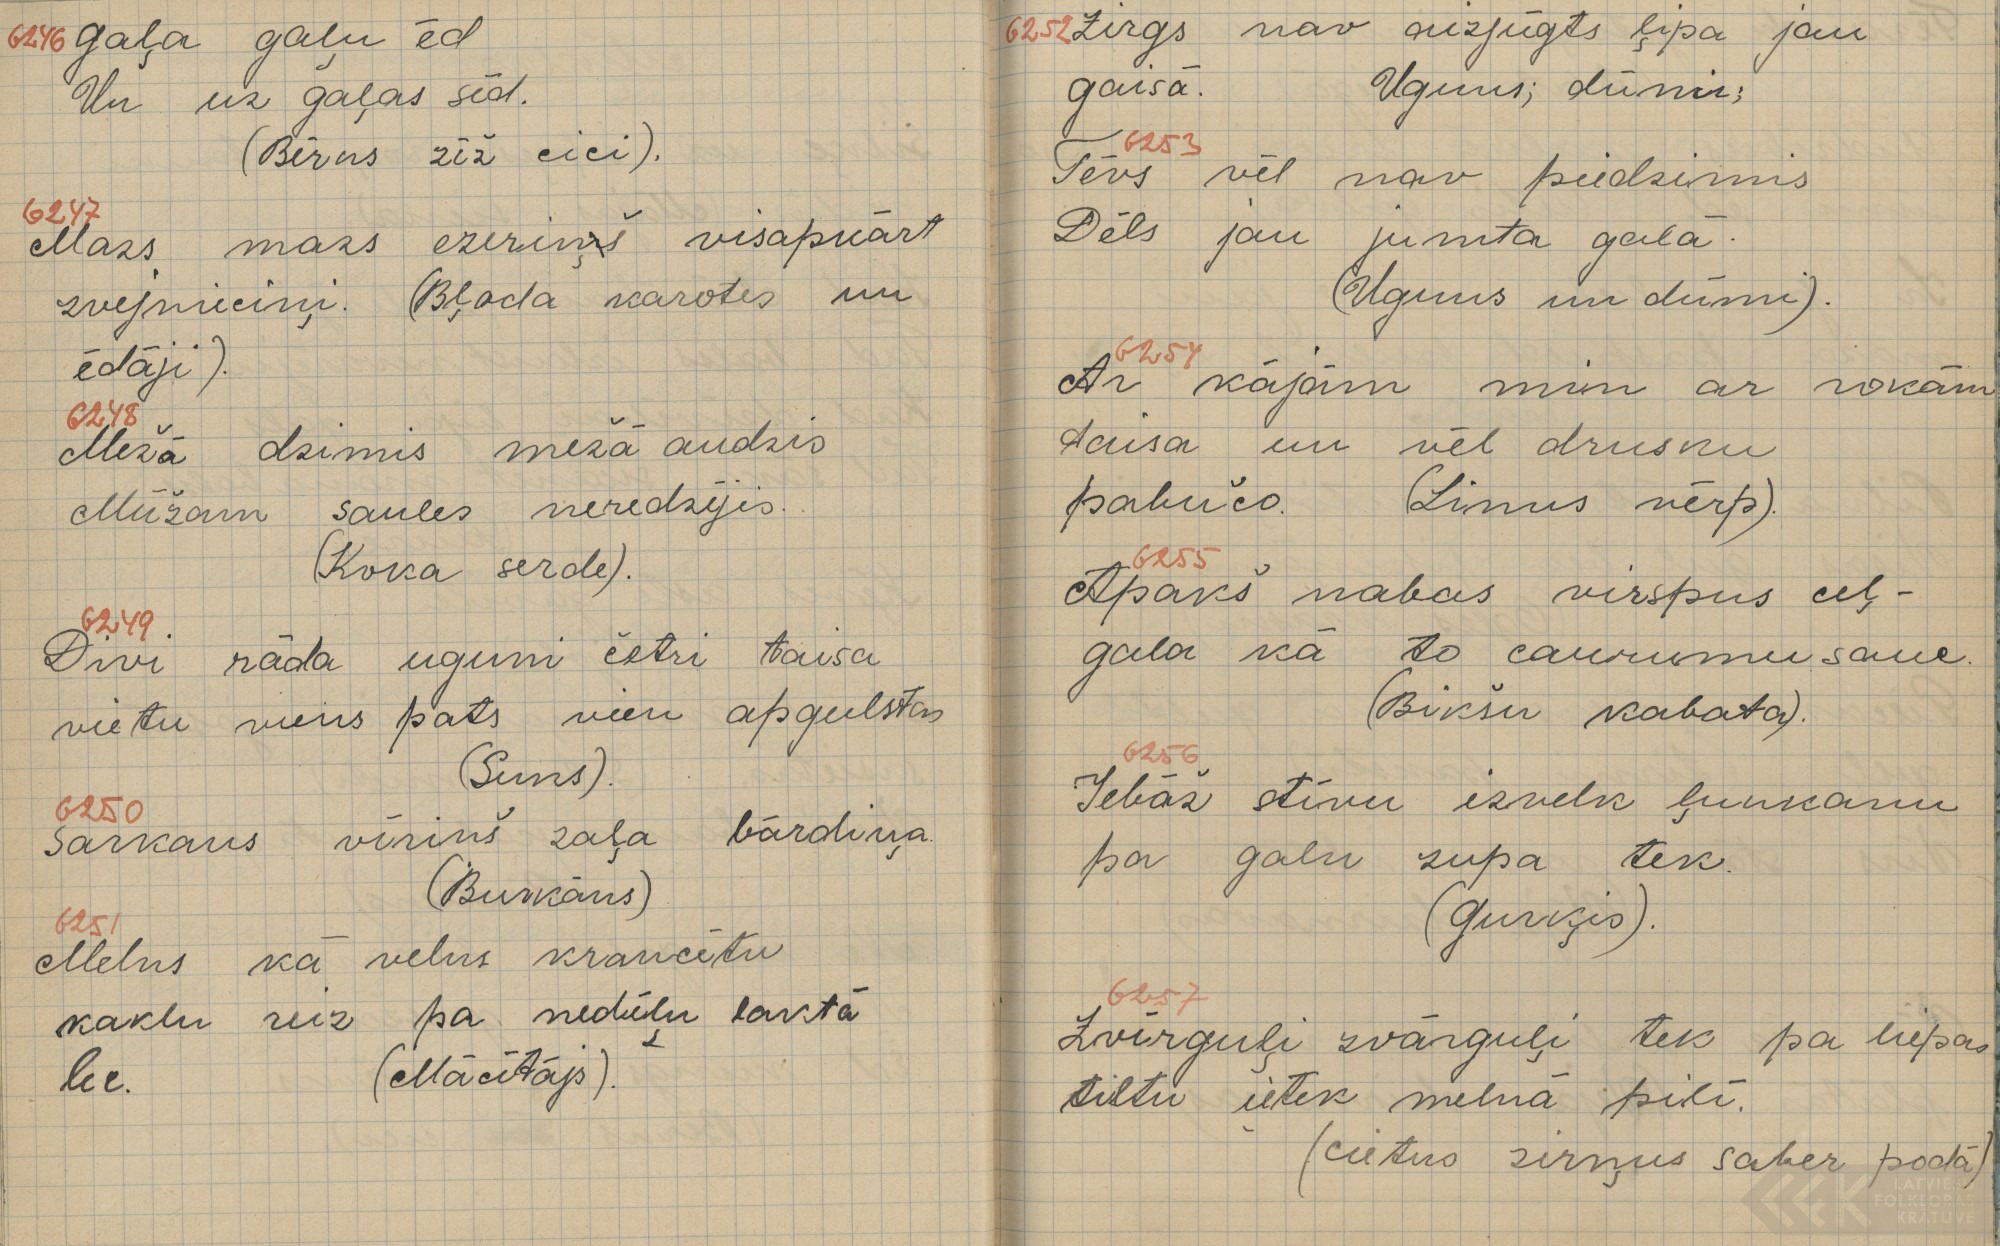 6246 Gaļa gaļu ēd
Un uz gaļas sēd.
(Bērns zīž cici).
6247
Mazs mazs ezeriņš visapkārt
zvejnieciņi. (Bļoda karotes un
ēdāji).
6248
Mežā dzimis mežā audzis
Mūžam saules neredzējis.
(Koka serde).
6249
Divi rāda uguni četri taisa
vietu viens pats vien apgulstas
(Suns).
6250
Sarkans vīriņš zaļa bārdiņa.
(Burkāns)
6251
Melns kā velns krancītu
kaklu reiz pa nedēļu laktā
lec. (Mācītājs).
6252 Zirgs nav aizjūgts ļipa jau
gaisā. Uguns; dūmi;
6253
Tēvs vēl nav piedzimis
Dēls jau jumta galā.
(Uguns un dūmi).
6254
Ar kājām min ar rokām
taisa un vēl drusku
pabučo. (Linus vērp).
6255
Apakš nabas virspus ceļ-
gala kā to caurumu sauc.
(Bikšu kabata).
6256
Iebāž stīvu izvelk ļunkanu
pa galu zupa tek.
(Gurķis).
6257
Zvirguļi zvārguļi tek pa liepas
tiltu ietek melnā pilī.
(cietus zirņus saber podā)
LATVIEŠU
FOLKLORAS
KRĀTUVE